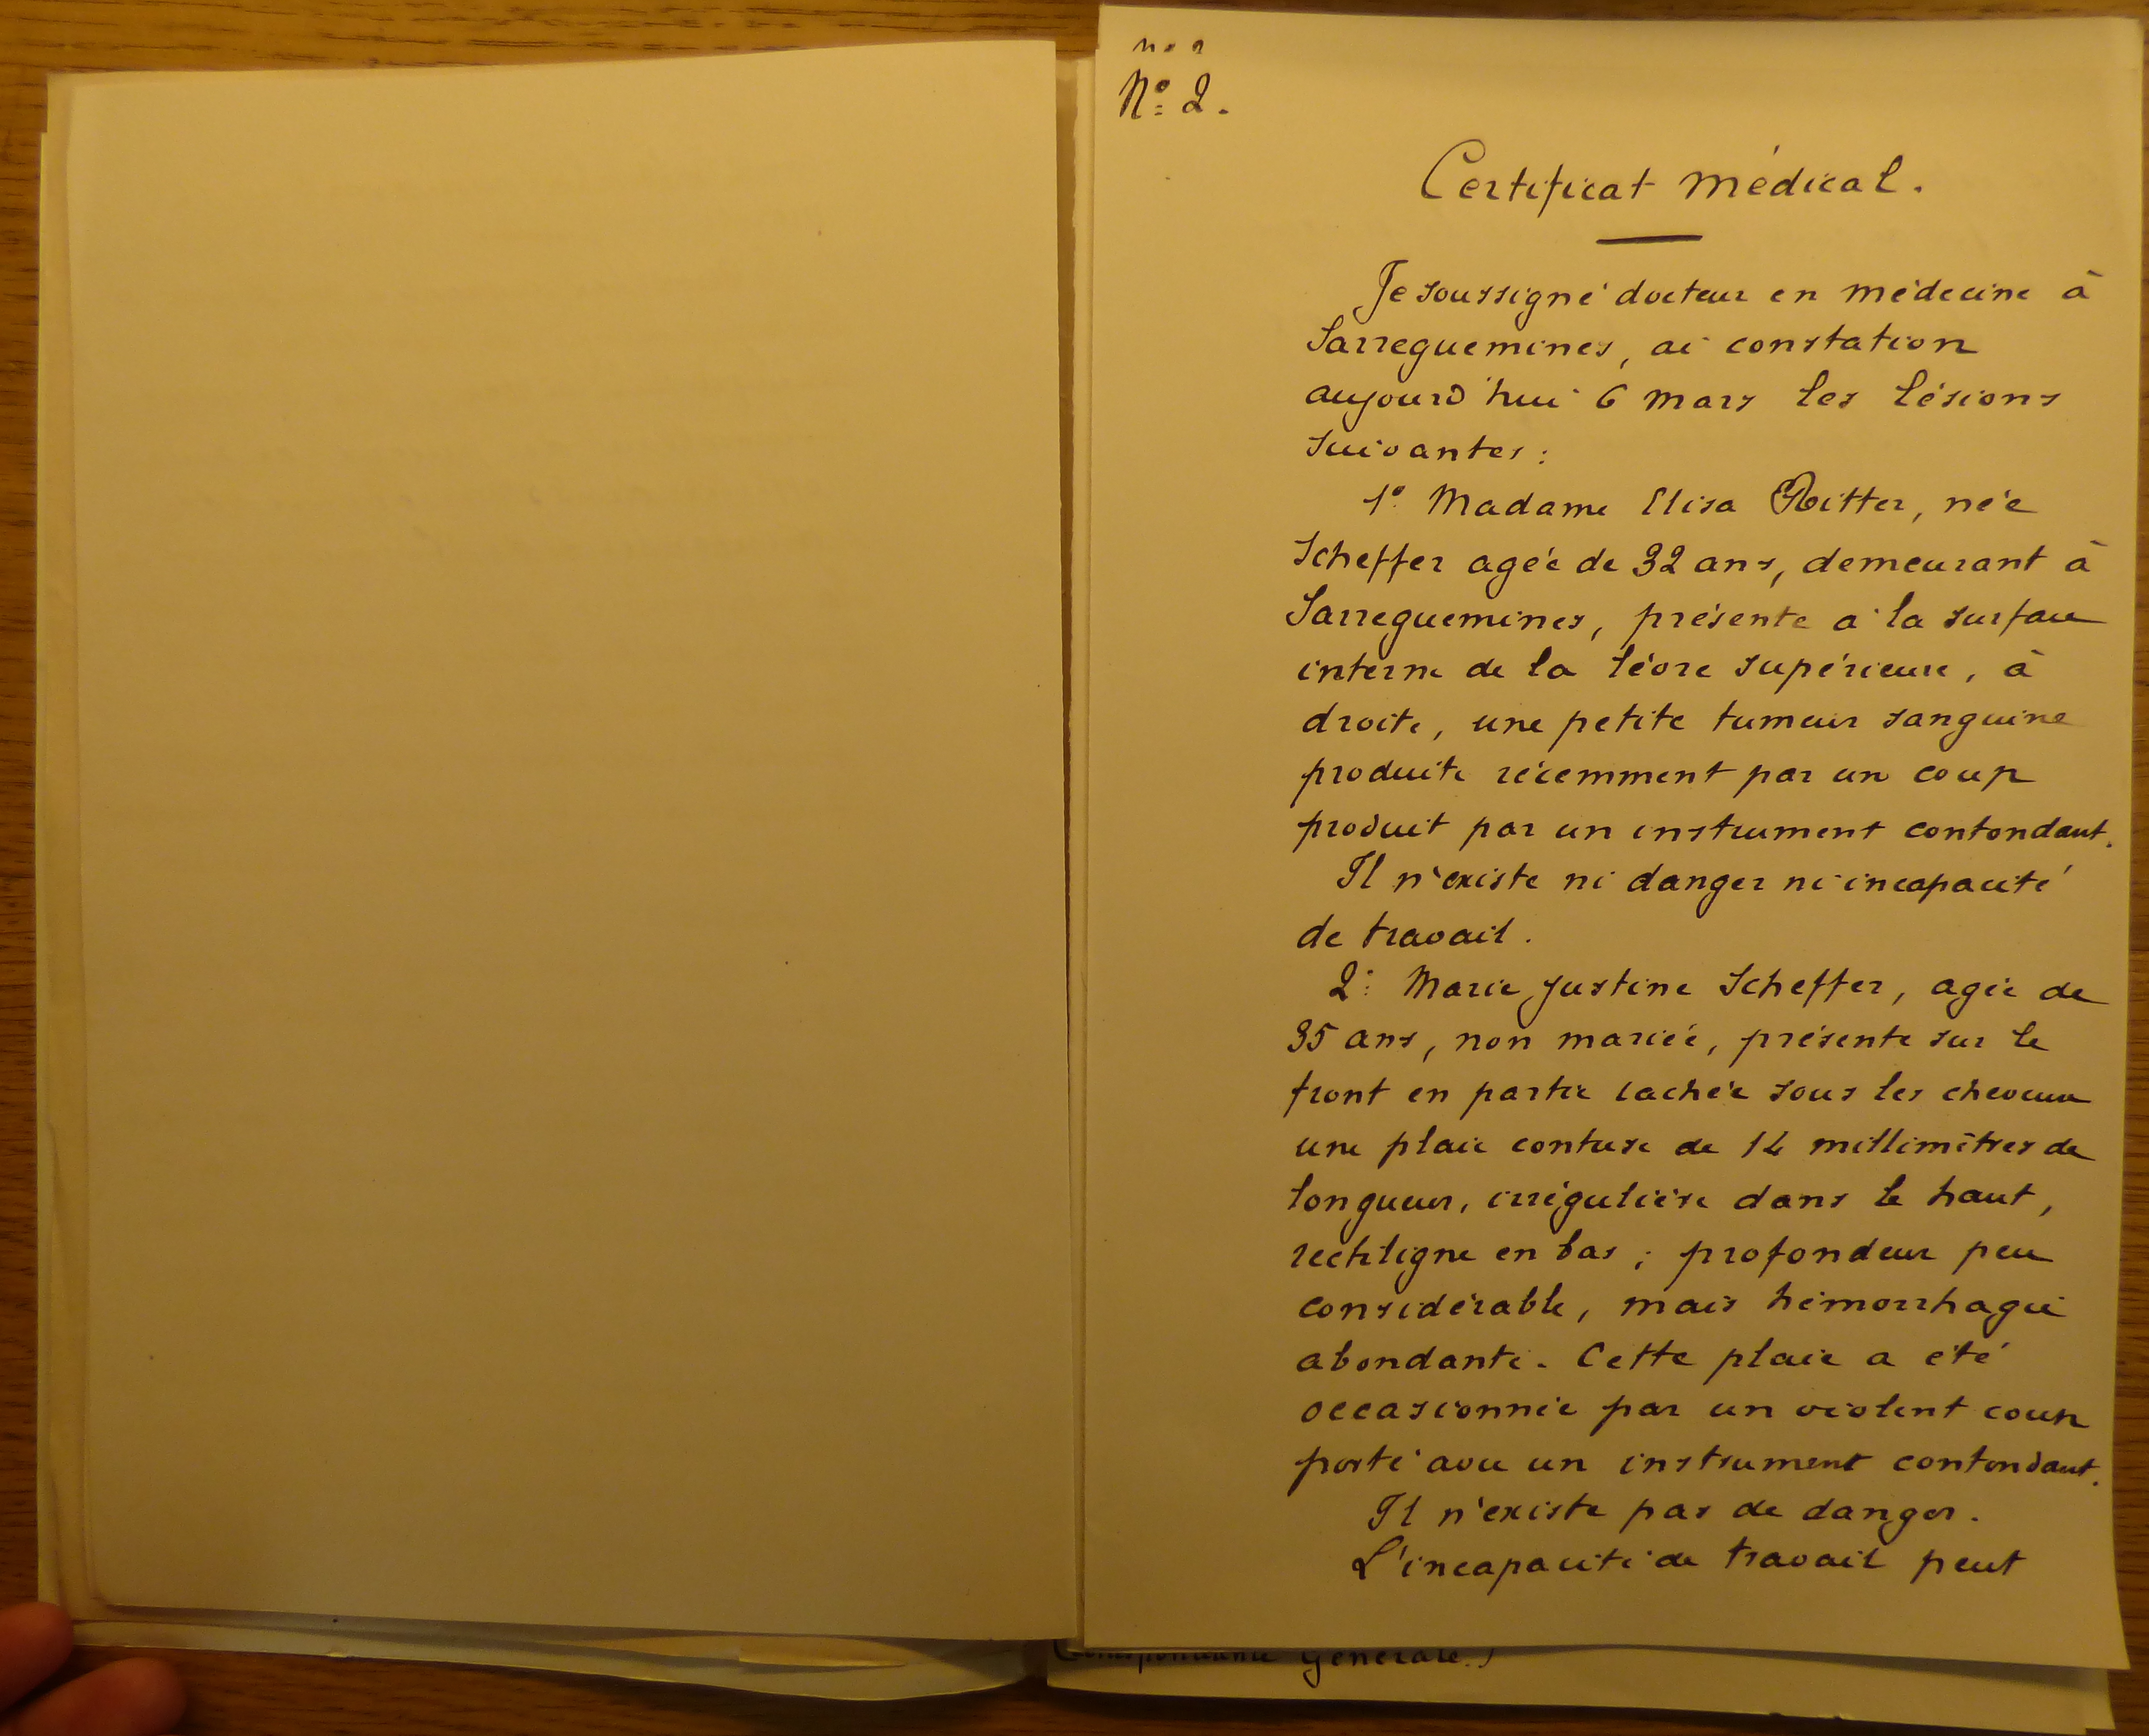 Nº 2.
Certificat médical.
Je soussigné docteur en médecine à
Sarreguemines, ai constation
aujourd'hui 6 mars les lésions
suivantes :
1º Madame Elisa Ritter, née
Scheffer agée de 32 ans, demeurant à
Sarreguemines, présente à la surface
interne de la lèvre supérieure, à
droite, une petite tumeur sanguine
produite récemment par un coup
produit par un instrument contondant.
Il n'existe ni danger ni incapacité
de travail.
2º Marie Justine Scheffer, agée de
35 ans, non mariée, présente sur le
front en partie cachée sous les cheveux
une plaie contuse de 14 millimètres de
longueur, irrégulière dans le haut,
rectiligne en bas ; profondeur peu
considérable, mais hémorrhagie
abondante. Cette plaie a été
occasionnée par un violent coup
porté avec un instrument contondant.
Il n'existe pas de danger.
L'incapacité de travail peut
Générale.)